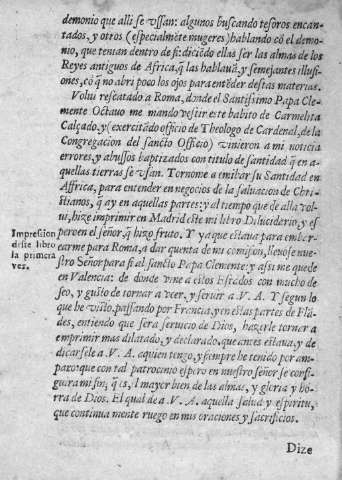 demonio que alli se vssan: algunos buscando tesoros encan-
tados, y otros (especialmẽte mugeres) hablando cõ el demo-
nio, que tentan dentro de si: diciẽdo ellas ser las almas de los
Reyes antiguos de Africa, q̃ las hablauã, y semejantes illusi-
ones, cõ q̃ no abri poco los ojos para entẽder destas materias.
Volui rescatado a Roma, donde el Santissimo Papa Cle-
mente Octauo me mando vestir este habito de Carmelita
Calçado, y (exercitãdo officio de Theologo de Cardenal, de la
Congregacion del sancto Officio) vinieron a mi noticia
errores, y abussos baptizados con titulo de santidad q̃ en a-
quellas tierras se vsan. Tornome a embiar su Santidad en
Affrica, para entender en negocios de la saluacion de Chri-
stianos, q̃ ay en aquellas partes: y al tiempo que de alla vol-
ui, hize imprimir en Madrid este mi libro Dilucidario, y es
Impression
deste libro
la primera
vez.
pero en el señor, q̃ hizo fruto. Y ya que estaua para embar-
carme para Roma, a dar quenta de mi comision, lleuose nue-
stro Señor para si al sancto Papa Clemente: y assi me quede
en Valencia: de donde vine a estos Estados con mucho de
seo, y gusto de tornar a veer, y seruir a V. A. Y segun lo
que he visto, passando por Francia, y en estas partes de Flã-
des, entiendo que sera seruicio de Dios, hazerle tornar a
emprimir mas dilatado, y declarado, que antes estaua, y de
dicarsele a V. A. a quien tengo, y sempre he tenido por am-
paro: que con tal patrocinio espero en nuestro señor se consi-
guira mi fin; q̃ es, el mayor bien de las almas, y gloria y hõ-
rra de Dios. El qual de a V. A. aquella salud y espiritu,
que continua mente ruego en mis oraciones y sacrificios.
Dize